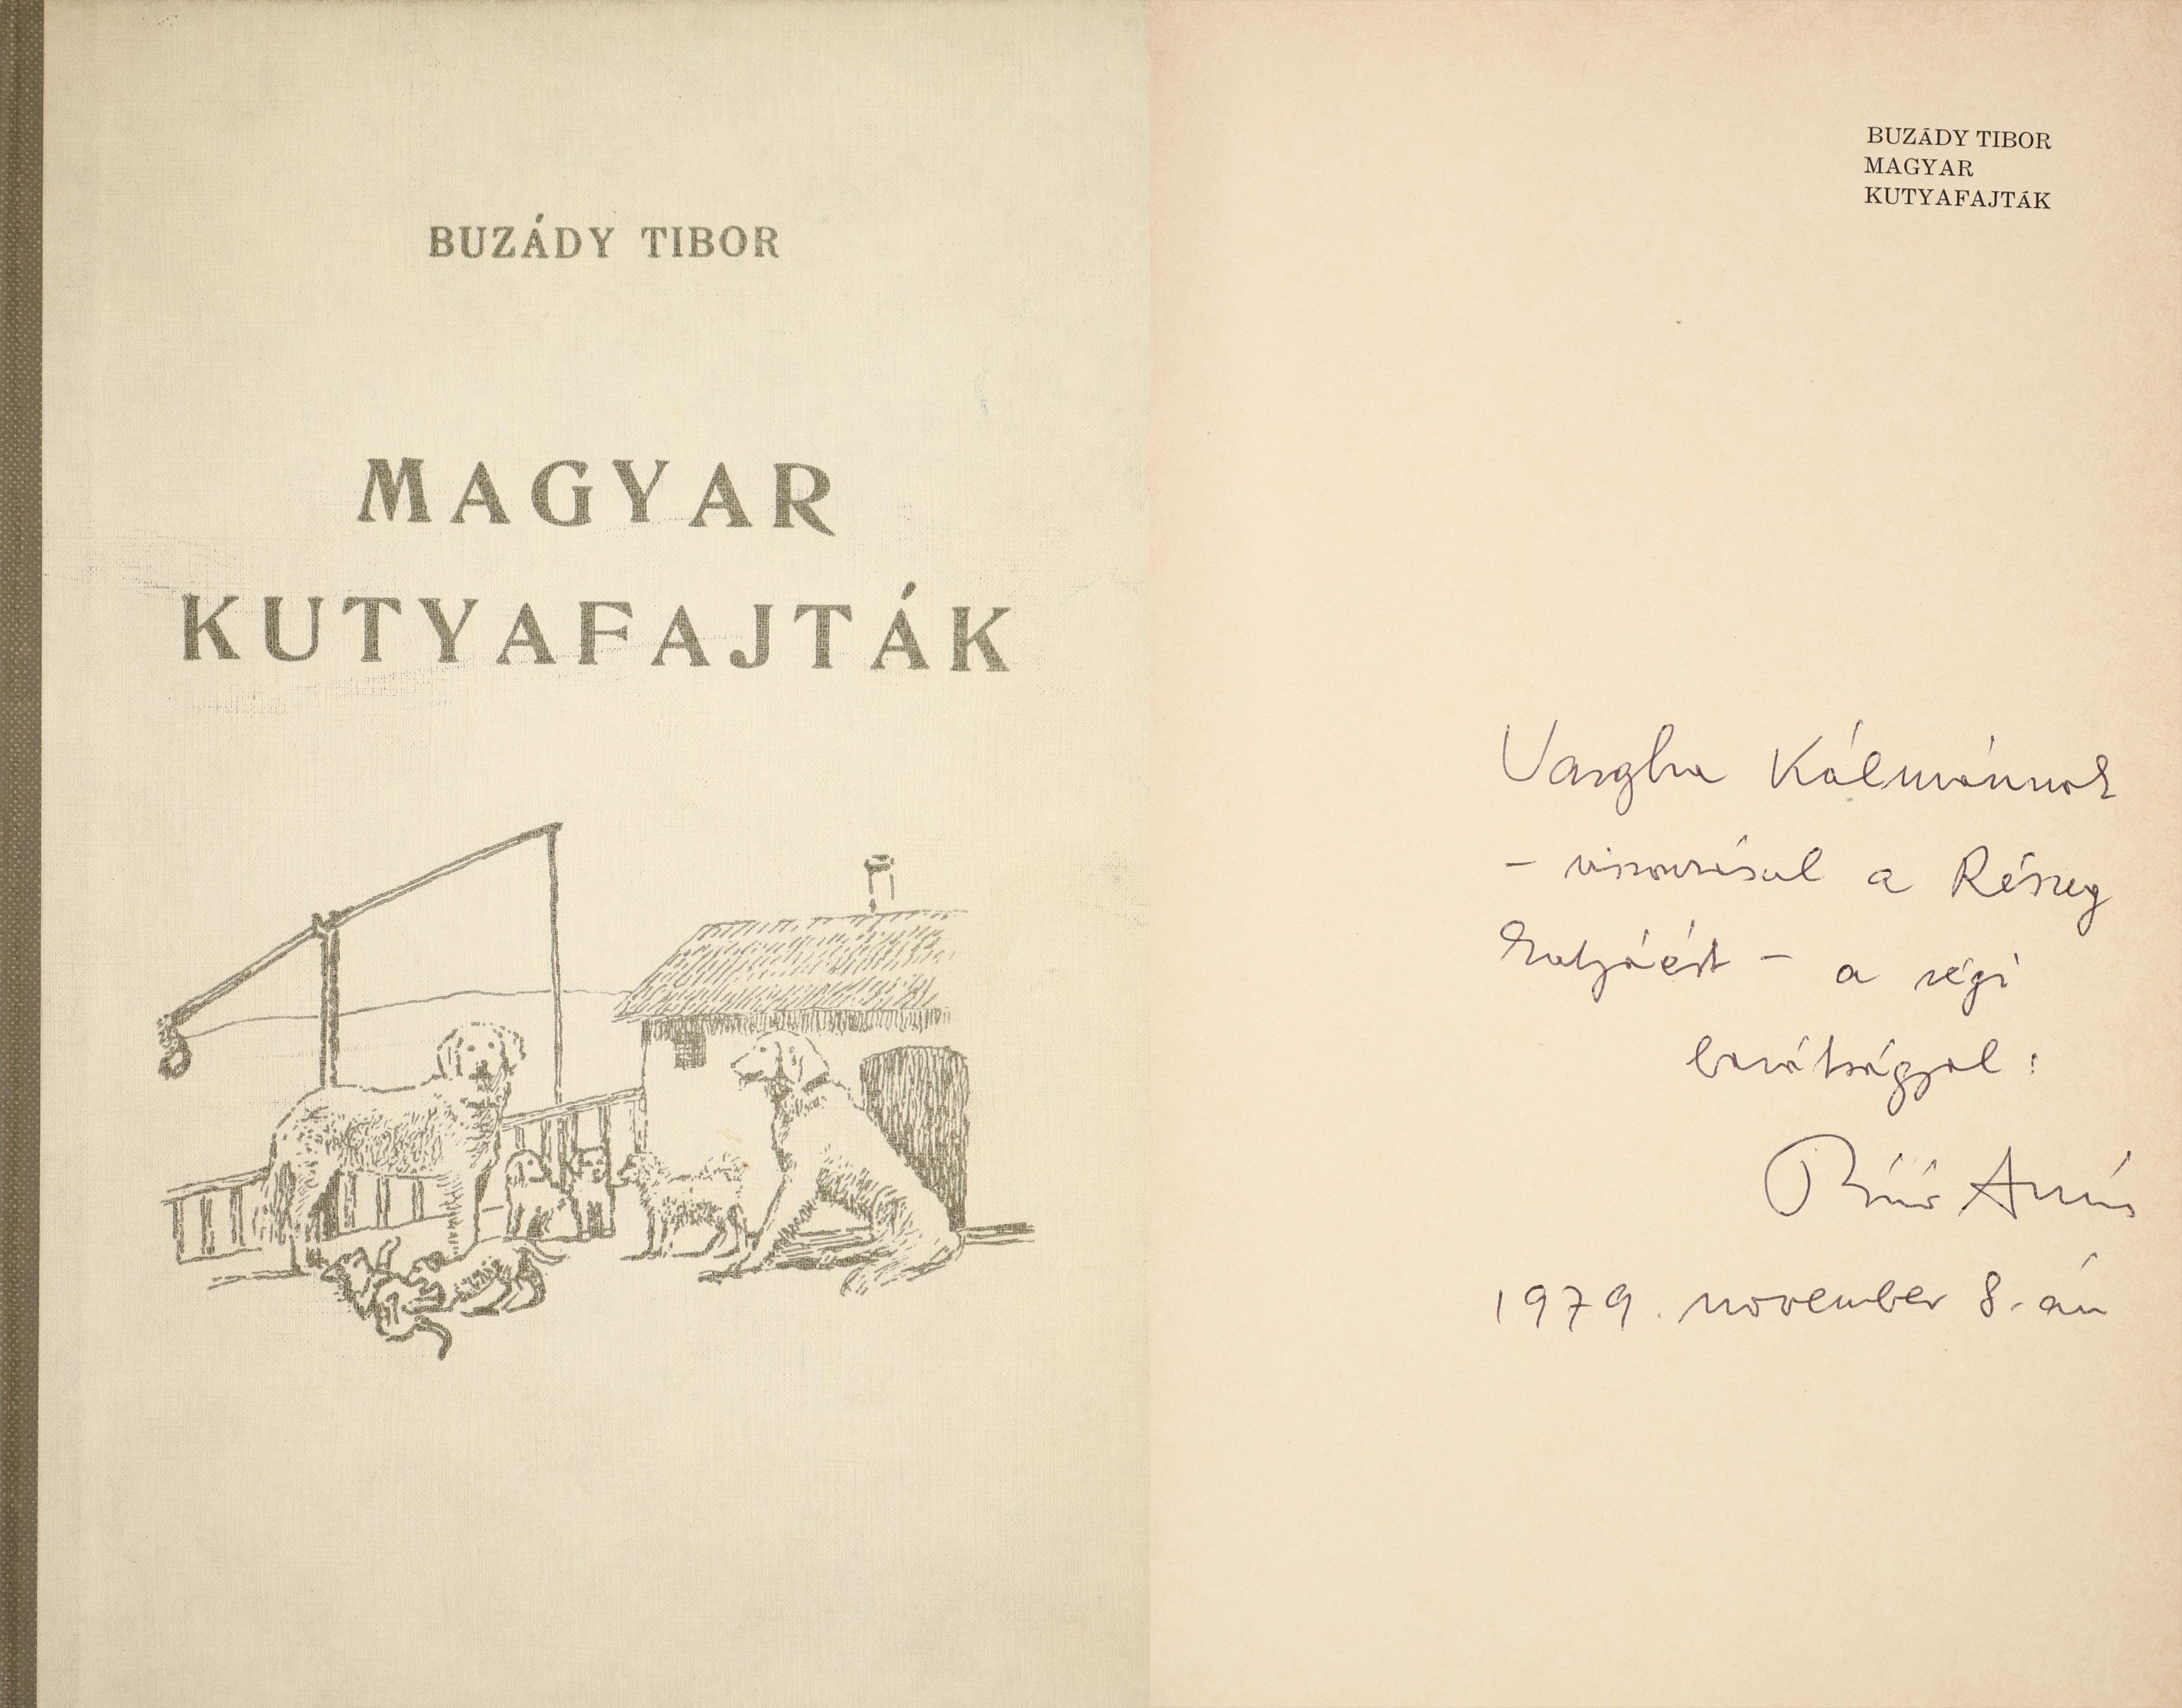 BUZÁDY TIBOR
MAGYAR
KUTYAFAJTÁK
BUZÁDY TIBOR
MAGYAR
KUTYAFAJTÁK
Vargha Kálmánnak
– viszonzásul a Részeg
kutyáért – a régi
barátsággal:
1979. november 8.-án